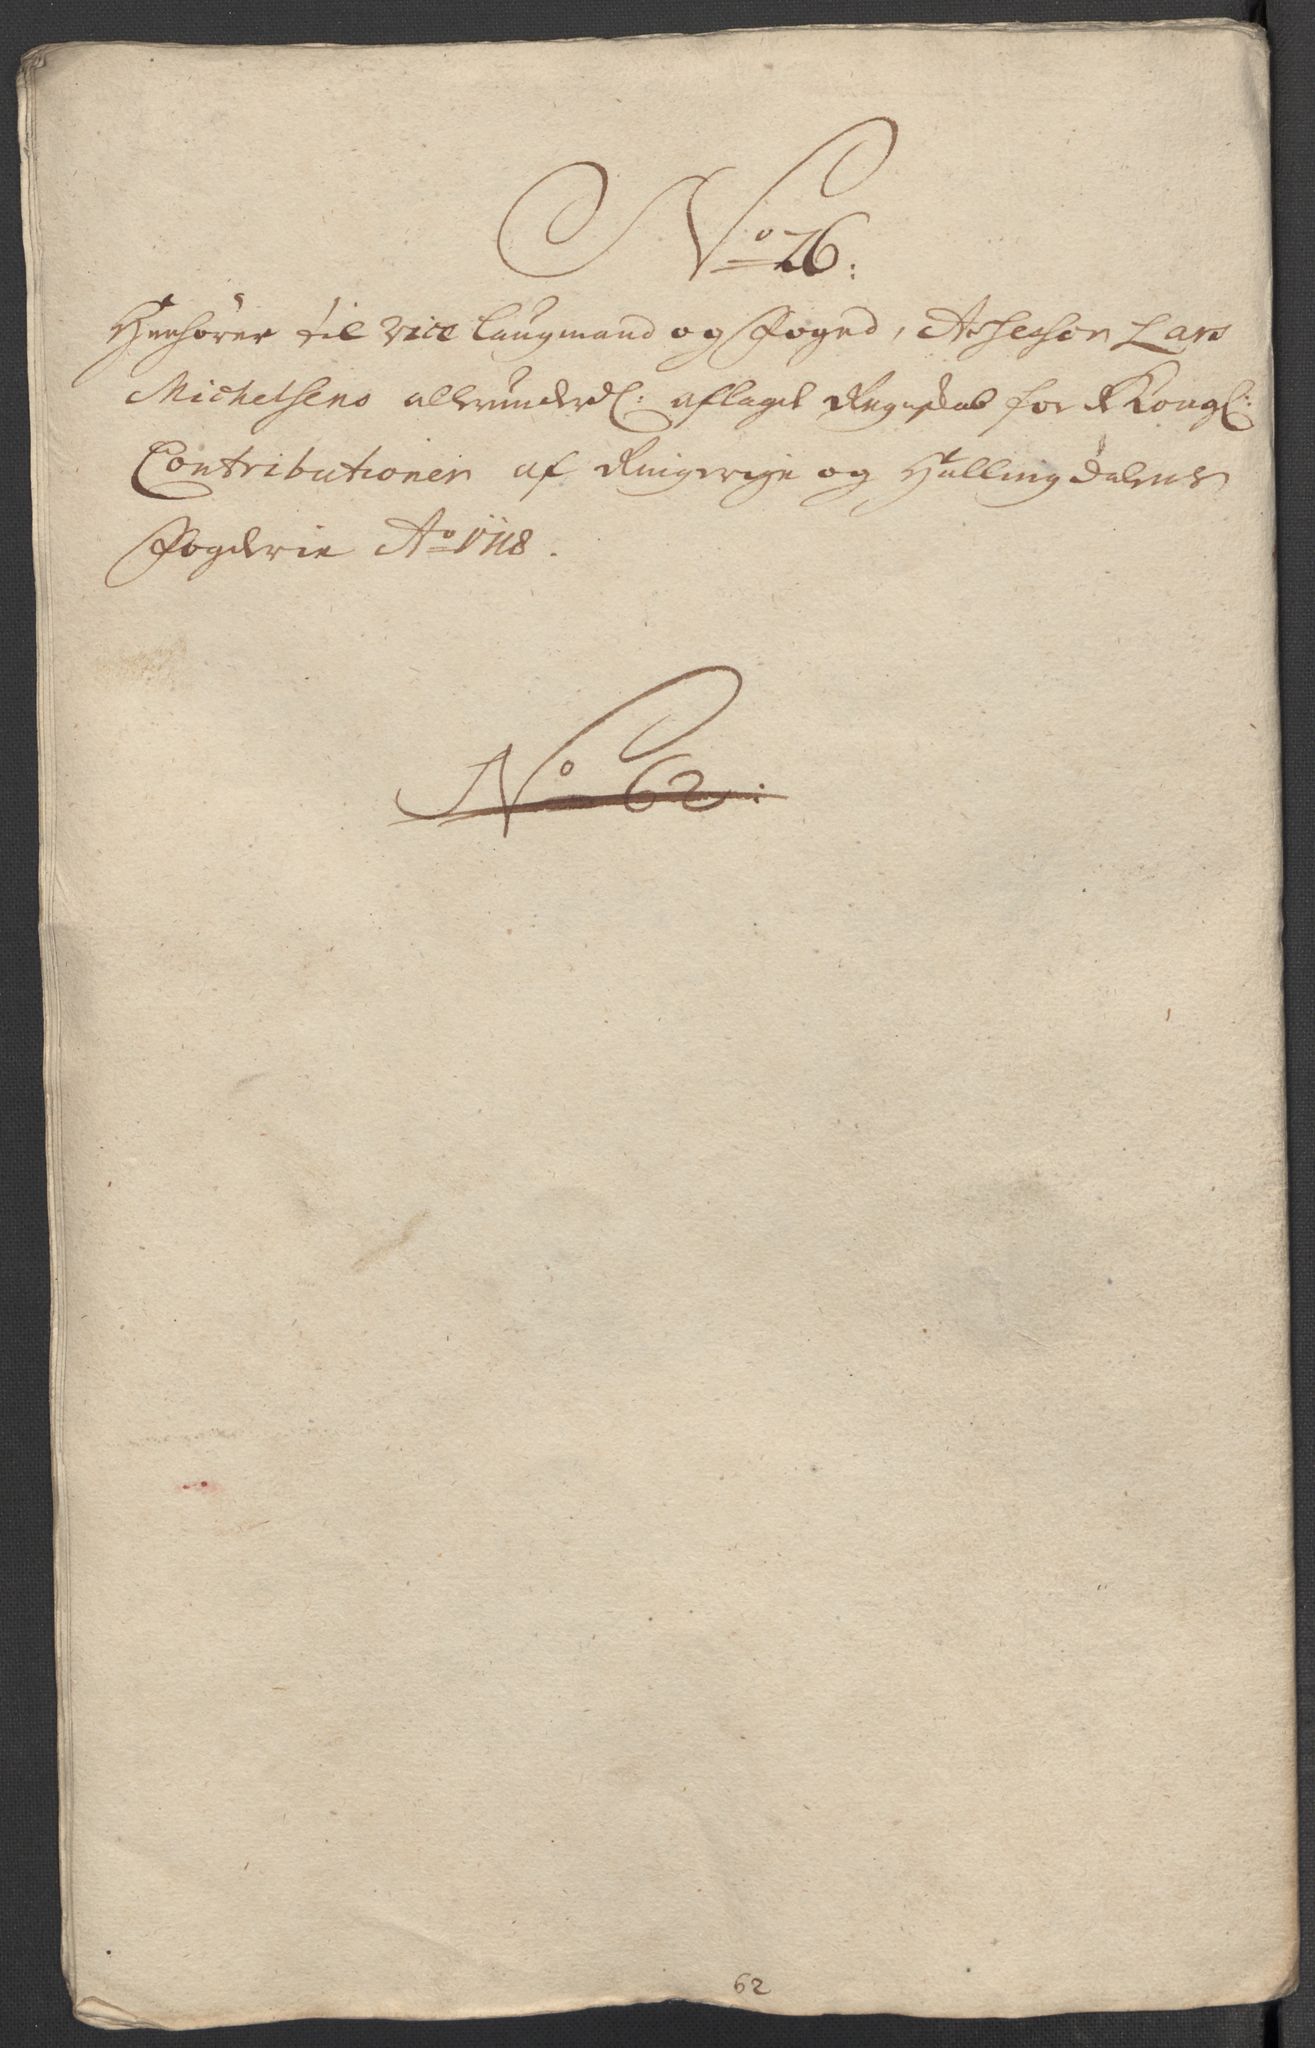 No 26:
Henhörer til Vice Laugmand og Foged, Assessor Lars
Michelsens allerunderdl: aflagde Regnskab for de Kongl:
Contributioner af Ringerige og Hallingdalens
Fogderie Ao 1718.
No 62:
62